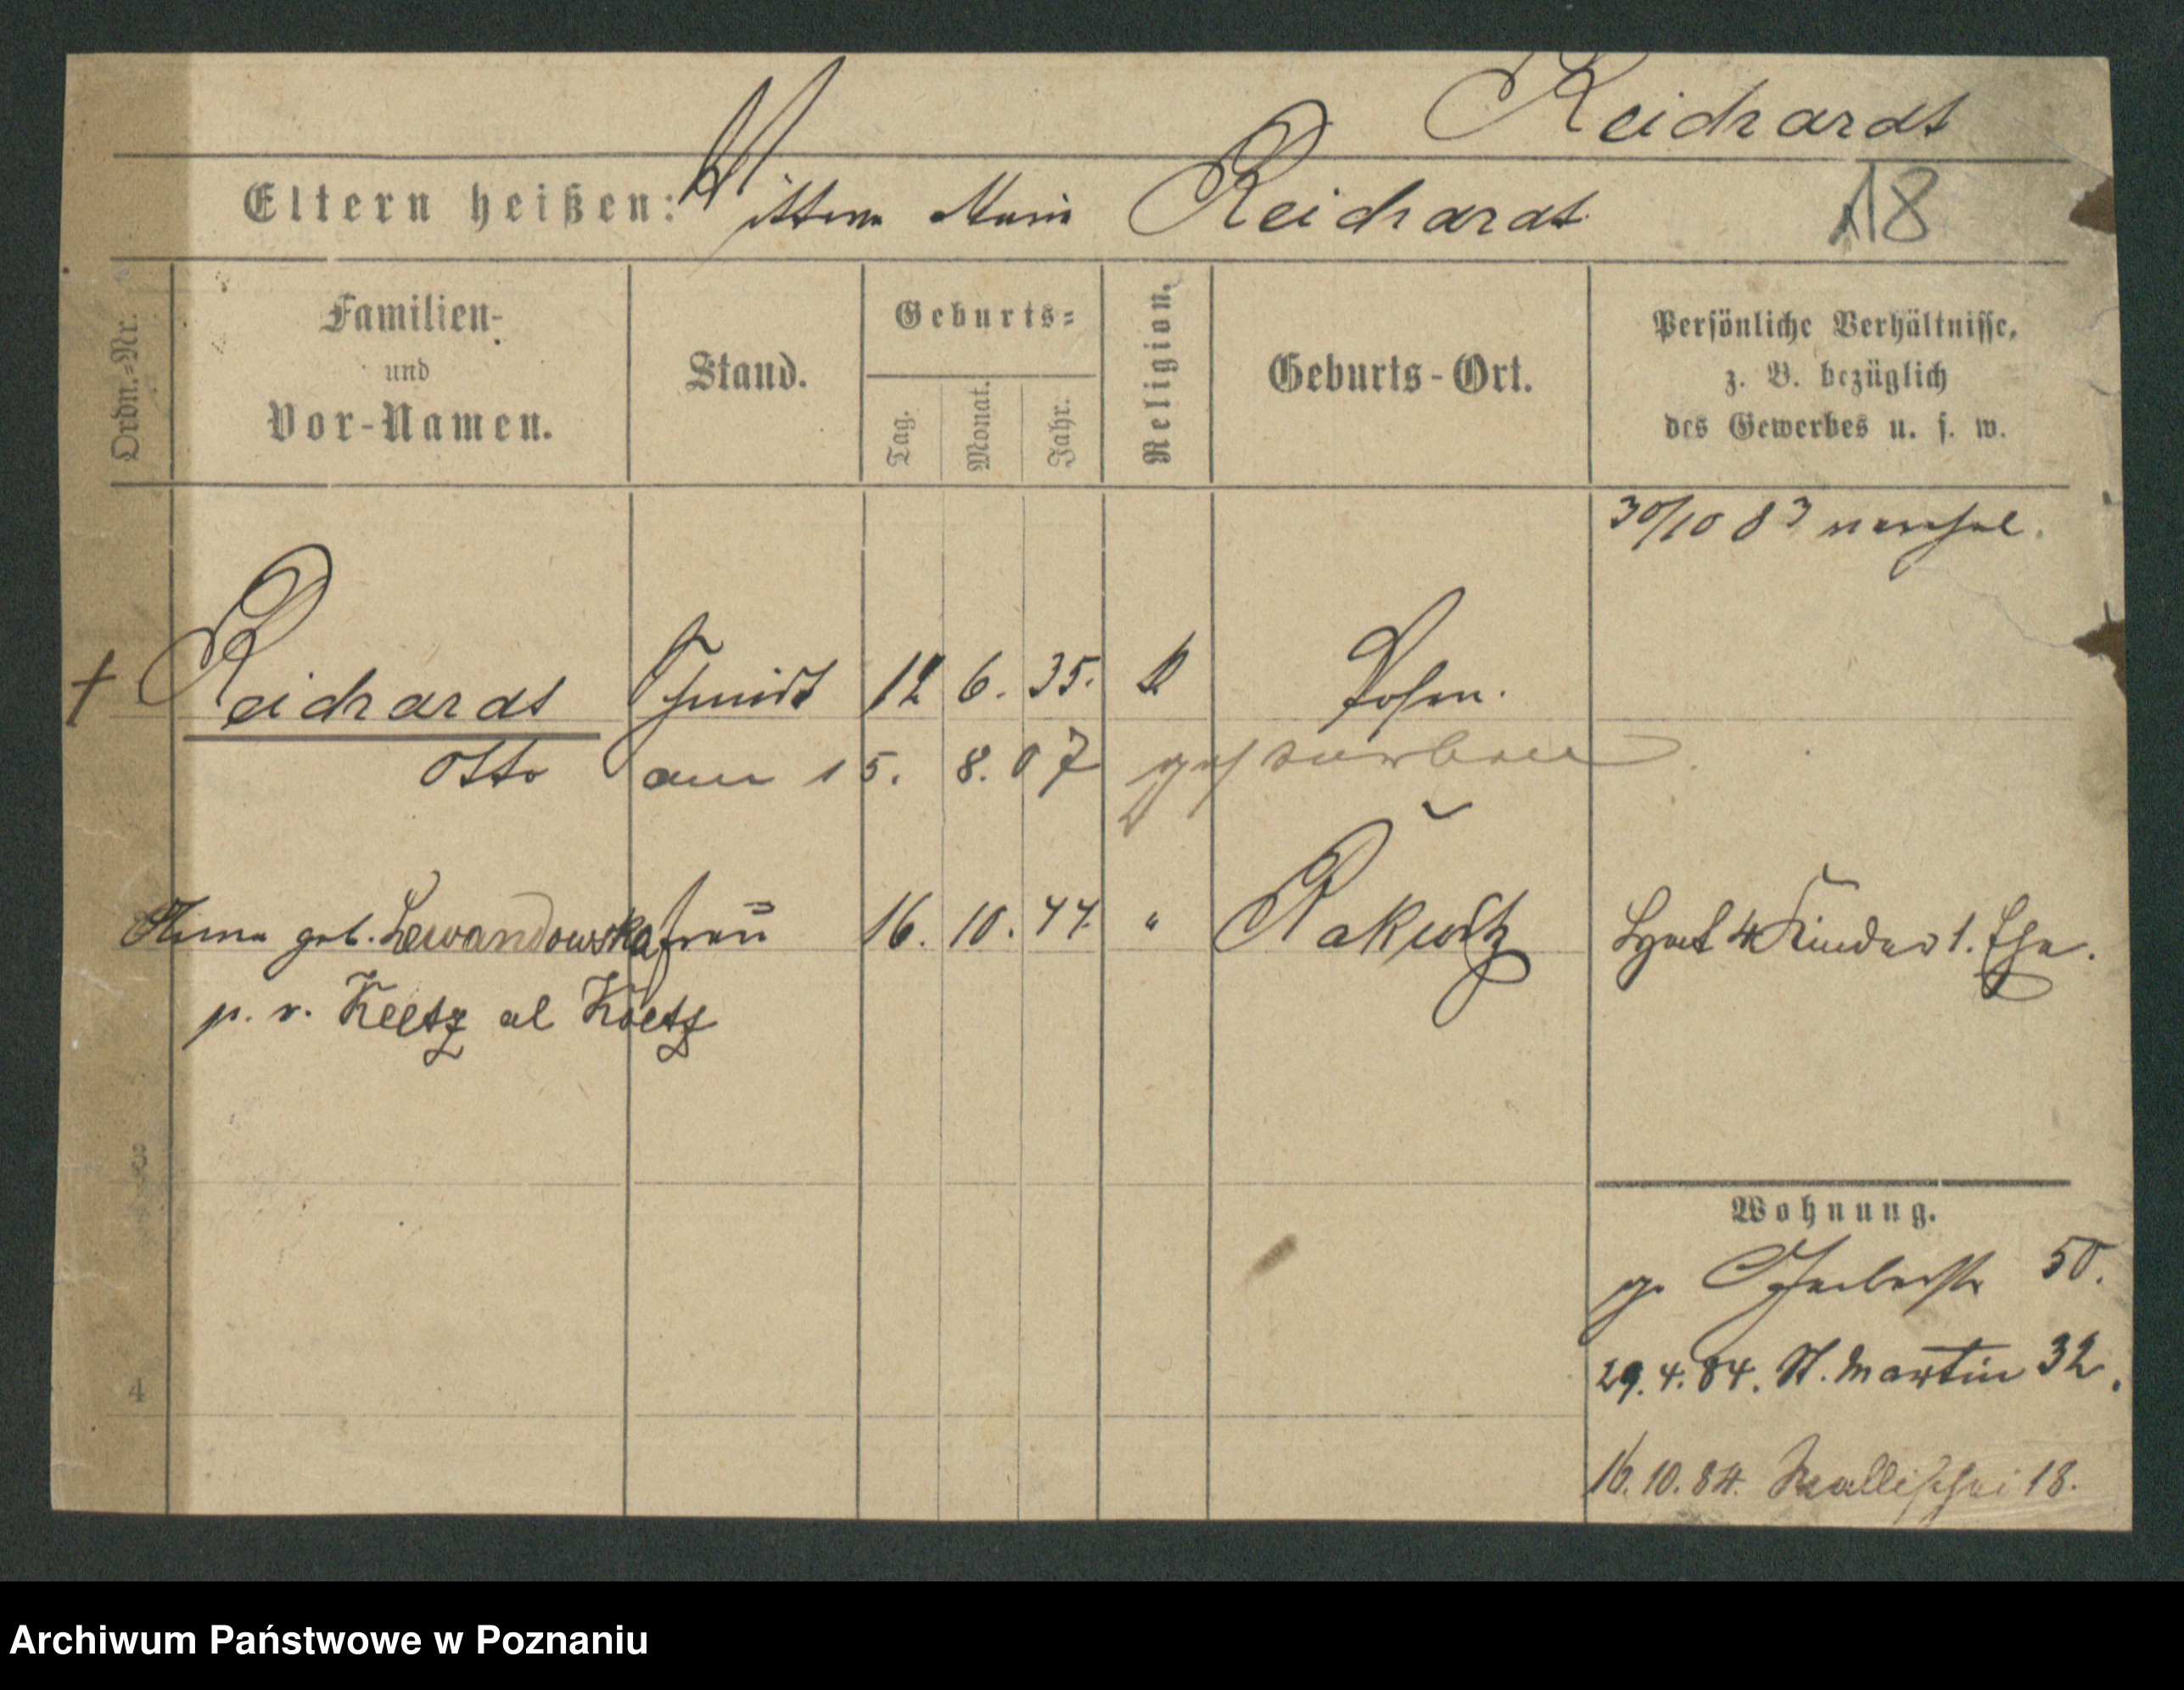 Reichardt
Eltern heißen: Wittwe Marie Reichardt
18
Ordn.-Nr.
Familien-
und
Vor-Namen.
Stand.
Geburts-
Tag.
Monat.
Jahr.
Religion.
Geburts-Ort.
Persönliche Verhältnisse,
z. B. bezüglich
des Gewerbes u. s. w.
30/10 83
† Reichardt Schmidt 12 6. 35. k Posen.
Otto am 15. 8. 07 gestorben
Anna geb. Lewandowska Frau 16. 10. 44. " Rakwitz hat 4 Kinder 1. Ehe.
p. v. Keetz al Koetz
3
4
Wohnung.
gr. Gerberstr 50.
29. 4. 84. St. Martin 32.
16. 10. 84. Wallischei 18.
Archiwum Państwowe w Poznaniu